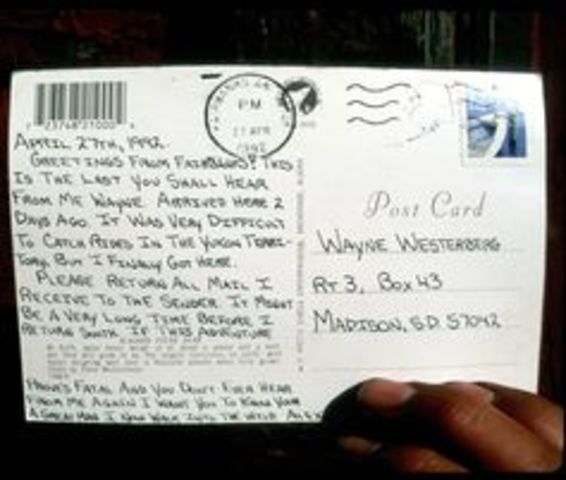 7 23748 21000
FAIRBANKS AK
PM
27 APR
1992
APRIL 27TH, 1992.
GREETINGS FROM FAIRBANKS! THIS
IS THE LAST YOU SHALL HEAR
FROM ME WAYNE. ARRIVED HERE 2
DAYS AGO. IT WAS VERY DIFFICULT
TO CATCH RIDES IN THE YUKON TERRI-
TORY. BUT I FINALLY GOT HERE.
PLEASE RETURN ALL MAIL I
RECEIVE TO THE SENDER. IT MIGHT
BE A VERY LONG TIME BEFORE I
RETURN SOUTH. IF THIS ADVENTURE
PROVES FATAL AND YOU DON'T EVER HEAR
FROM ME AGAIN I WANT YOU TO KNOW YOUR
A GREAT MAN. I NOW WALK INTO THE WILD. ALEX
Post Card
WAYNE WESTERBERG
RT 3, BOX 43
MADISON, S.D. 57042